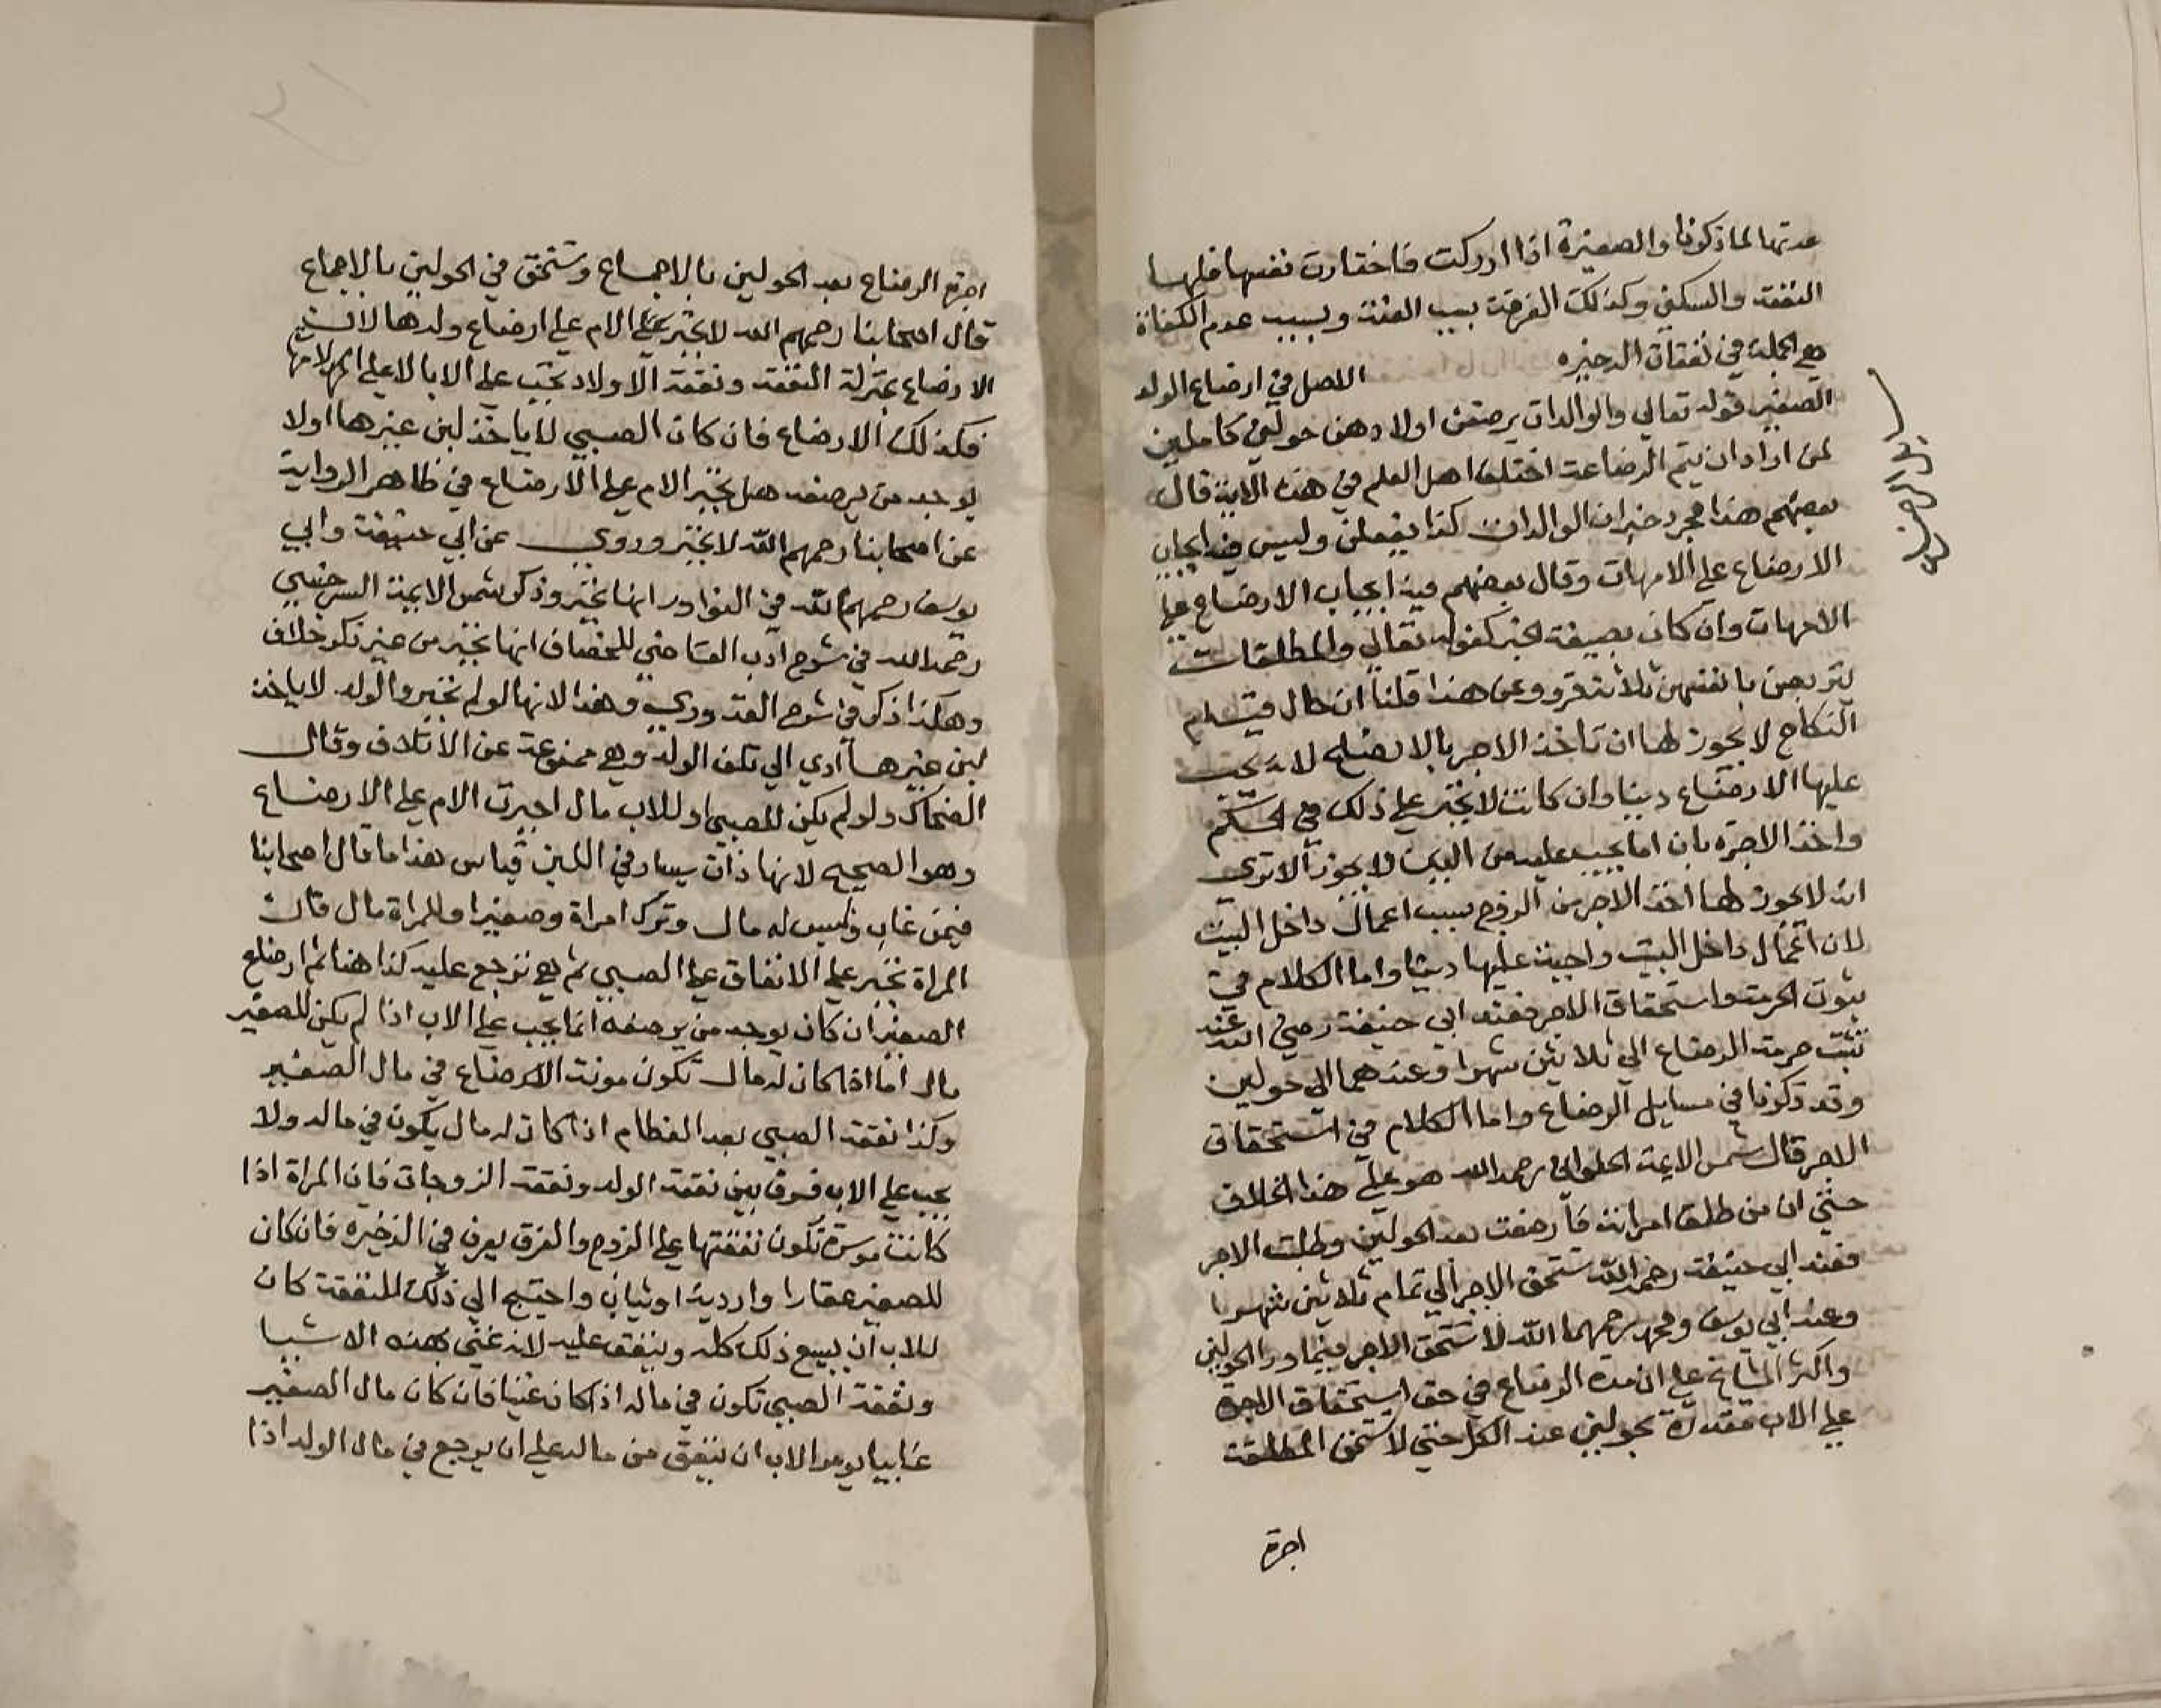 عدتها لما ذكرنا والصغيرة اذا ادركت فاختارت نفسها فلها
النفقة والسكني وكذلك الفرقة بسبب العنة وبسبب عدم الكفاة
هي الجملة في نفقات الدخيره الاصل في ارضاع الولد
الصغير قوله تعالي والوالدات يرضعن اولادهن حولين كاملين
لمن اراد ان يتم الرضاعة اختلف اهل العلم في هذه الاية قال
بعضهم هذا مجرد خبر ان الوالدات كذا يفعلن وليس فيه ايجاب
الارضاع علي الامهات وقال بعضهم فيه ايجاب الارضاع علي
الامهات وان كان بصيغة الخبر كقوله تعالي والمطلقات
يتربصن بانفسهن ثلاثة قروء وعن هذا قلنا ان حال قيام
النكاح لا يجوز لها ان تاخذ الاجر بالارضاع لانه يجب
عليها الارضاع دينا وان كانت لا تجبر علي ذلك في الحكم
واخذ الاجرة بازا ما يجب عليه من الدين لا يجوز الا تري
انه لا يجوز لها اخذ الاجر من الزوج بسبب اعمال داخل البيت
لان اعمال داخل البيت واجبة عليها دينا واما الكلام في
ثبوت الحرمة واستحقاق الاجر فعند ابي حنيفة رضي الله عنه
تثبت حرمة الرضاع الي ثلاثين شهرا وعندهما الي حولين
وقد ذكرنا في مسايل الرضاع واما الكلام في استحقاق
الاجر قال شمس الايمة الحلواني رحمه الله هو علي هذا الخلاف
حتي ان من طلق امراته فارضعت بعد الحولين وطلبت الاجر
فعند ابي حنيفة رحمه الله تستحق الاجر الي تمام ثلاثين شهرا
وعند ابي يوسف ومحمد رحمهما الله لا تستحق الاجر فيما ورا الحولين
واكثر المشايخ علي ان مدة الرضاع في حق استحقاق الاجرة
علي الاب مقدرة بحولين عند الكل حتي لا تستحق المطلقة
اجرة
اجرة الرضاع بعد الحولين بالاجماع وتستحق في الحولين بالاجماع
قال اصحابنا رحمهم الله لا تجبر الام علي ارضاع ولدها لان
الارضاع بمنزلة النفقة ونفقة الاولاد تجب علي الابا لا علي الامهات
فكذلك الارضاع فان كان الصبي لا ياخذ لبن غيرها او لا
يوجد من يرضعه هل تجبر الام علي الارضاع في ظاهر الرواية
عن اصحابنا رحمهم الله لا تجبر وروي عن ابي حنيفة وابي
يوسف رحمهما الله في النوادر انها تجبر وذكر شمس الايمة السرخسي
رحمه الله في شرح ادب القاضي للخصاف انها تجبر من غير ذكر خلاف
وهكذا ذكر في شرح القدوري وهذا لانها لو لم تجبر والولد لا ياخذ
لبن غيرها ادي الي تلف الولد وهي ممنوعة عن الاتلاف وقال
الضحاك ولو لم يكن للصبي او للاب مال اجبرت الام علي الارضاع
وهو الصحيح لانها ذات يسار في اللبن قياس هذا ما قال اصحابنا
فيمن غاب وليس له مال وترك امراة وصغيرا وللمراة مال فان
المراة تجبر علي الانفاق علي الصبي ثم هي ترجع عليه كذا هنا ثم ارضاع
الصغير ان كان يوجد من يرضعه انما يجب علي الاب اذا لم يكن للصغير
مال اما اذا كان له مال تكون مونة الارضاع في مال الصغير
وكذا نفقة الصبي بعد الفطام اذا كان له مال يكون في ماله ولا
يجب علي الاب فرق بين نفقة الولد ونفقة الزوجات فان المراة اذا
كانت موسرة تكون نفقتها علي الزوج والفرق يعرف في الذخيره فان كان
للصغير عقارا واردية او ثياب واحتيج الي ذلك للنفقة كان
للاب ان يبيع ذلك كله وينفق عليه لانه غني بهذه الاشيا
ونفقة الصبي تكون في ماله اذا كان غنيا فان كان مال الصغير
غايبا يومر الاب ان ينفق من ماله علي ان يرجع في مال الولد اذا